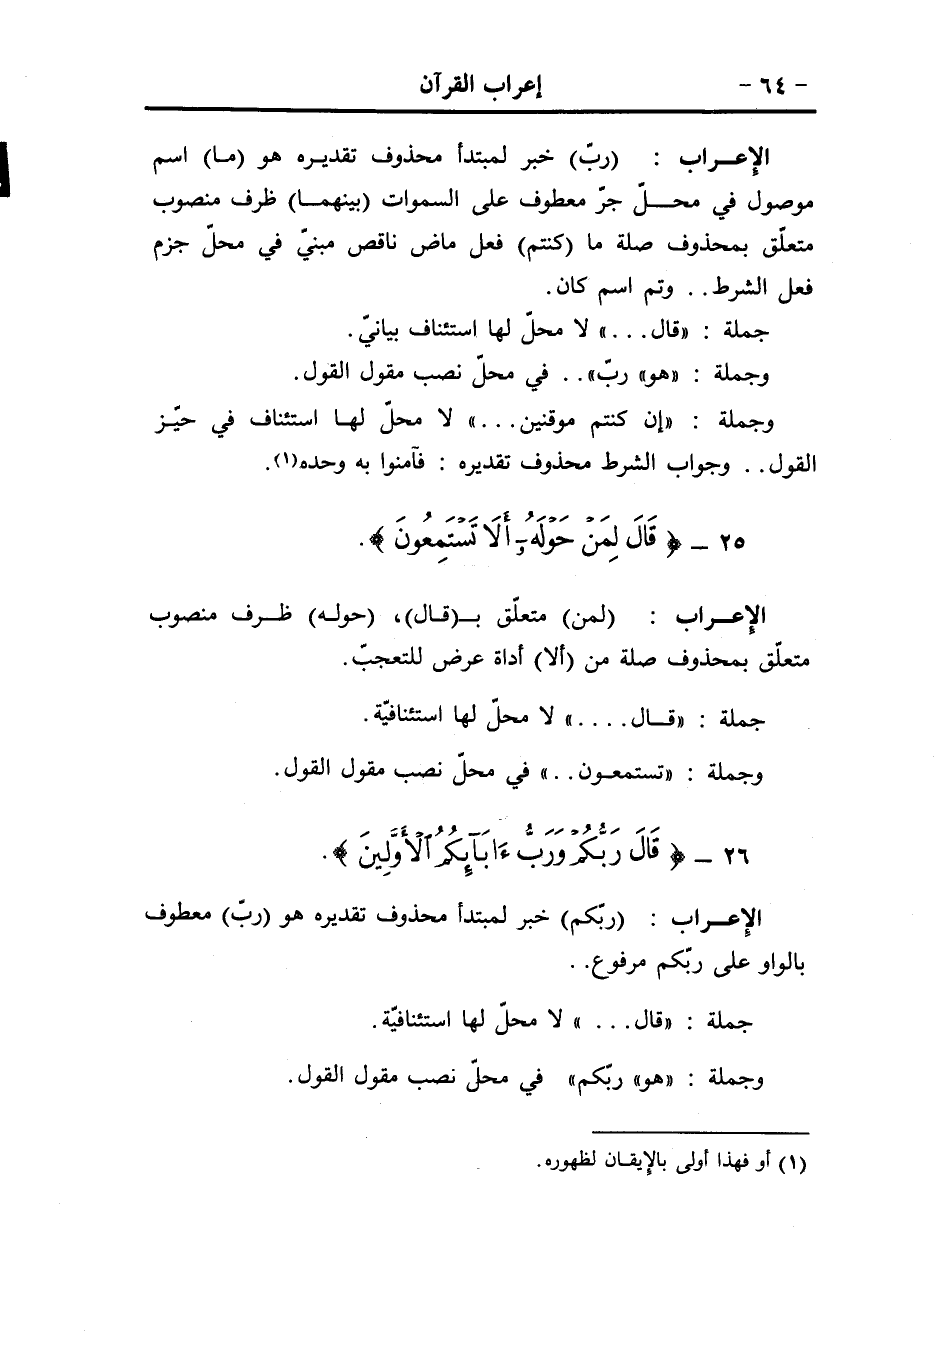 - ٦٤ - إعراب القرآن
الإعـراب : (ربّ) خبر لمبتدأ محذوف تقديـره هو (مـا) اسم
موصول في محـلّ جرّ معطوف على السموات (بينهمـا) ظرف منصوب
متعلّق بمحذوف صلة ما (كنتم) فعل ماض ناقص مبنيّ في محلّ جزم
فعل الشرط.. وتم اسم كان.
جملة : «قال...» لا محلّ لها استئناف بيانيّ.
وجملة : «هو» ربّ».. في محلّ نصب مقول القول.
وجملة : «إن كنتم موقنين...» لا محلّ لهـا استئناف في حيّـز
القول.. وجواب الشرط محذوف تقديره : فآمنوا به وحده(١).
٢٥ ـ ﴿ قَالَ لِمَنْ حَوْلَهُۥٓ أَلَا تَسْتَمِعُونَ ﴾.
الإعـراب : (لمن) متعلّق بـ(قـال)، (حولـه) ظـرف منصوب
متعلّق بمحذوف صلة من (ألا) أداة عرض للتعجبّ.
جملة : «قـال....» لا محلّ لها استئنافيّة.
وجملة : «تستمعـون..» في محلّ نصب مقول القول.
٢٦ ـ ﴿ قَالَ رَبُّكُمْ وَرَبُّ ءَابَآئِكُمُ ٱلْأَوَّلِينَ ﴾.
الإعـراب : (ربّكم) خبر لمبتدأ محذوف تقديره هو (ربّ) معطوف
بالواو على ربّكم مرفوع..
جملة : «قال... » لا محلّ لها استئنافيّة.
وجملة : «هو» ربّكم» في محلّ نصب مقول القول.
(١) أو فهذا أولى بالإيقـان لظهوره.